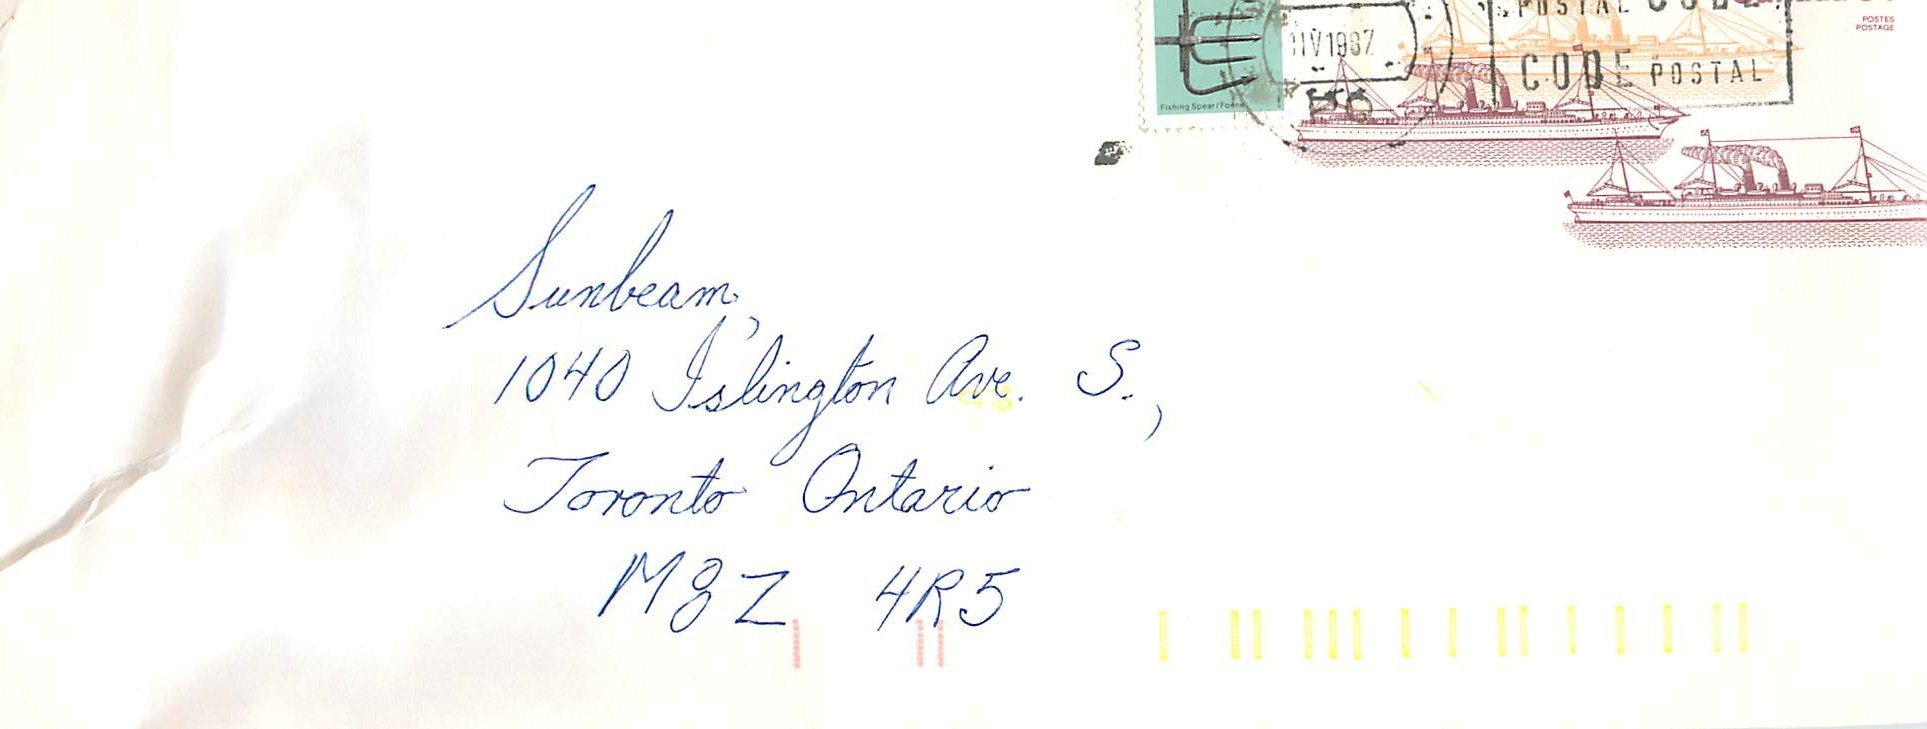 POSTAL CODE
POSTES
POSTAGE
IIV1987
CODE POSTAL
Fishing Spear/Foène
Sunbeam,
1040 Islington Ave. S.,
Toronto Ontario
M8Z 4R5